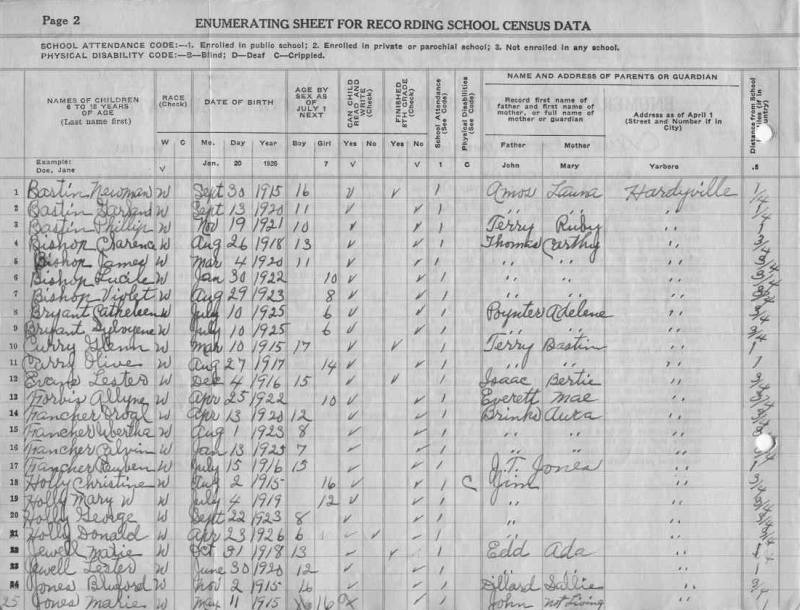 Page 2
ENUMERATING SHEET FOR RECORDING SCHOOL CENSUS DATA
SCHOOL ATTENDANCE CODE:—1. Enrolled in public school; 2. Enrolled in private or parochial school; 3. Not enrolled in any school.
PHYSICAL DISABILITY CODE:—B—Blind; D—Deaf C—Crippled.
NAMES OF CHILDREN 6 TO 18 YEARS OF AGE (Last name first) RACE (Check) W C DATE OF BIRTH Mo. Day Year AGE BY SEX AS OF JULY 1 NEXT Boy Girl CAN CHILD READ AND WRITE (Check) Yes No FINISHED 8TH GRADE (Check) Yes No School Attendance (See Code) Physical Disabilities (See Code) NAME AND ADDRESS OF PARENTS OR GUARDIAN Record first name of father and first name of mother, or full name of mother or guardian Father Mother Address as of April 1 (Street and Number if in City) Distance from School
Example: Doe, Jane V Jan. 20 1926 7 V V 1 C John Mary Yarboro .5
1 Bastin Newman W Sept 30 1915 16 v v 1 Amos Launa Hardyville 1/4
2 Bastin W Sept 13 1920 11 v v 1 " " " 1/4
3 Bastin Phillip W Nov 19 1921 10 v v 1 Terry Ruby " 1
4 Bishop Clarence W Aug 26 1918 13 v v 1 Thomas Carthy " 3/4
5 Bishop James W Mar 4 1920 11 v v 1 " " " 3/4
6 Bishop Lucile W Jan 30 1922 10 v v 1 " " " 3/4
7 Bishop Violet W Aug 29 1923 8 v v 1 " " " 3/4
8 Bryant Catheleen W July 10 1925 6 v v 1 Poynter Adelene " 3/4
9 Bryant W July 10 1925 6 v v 1 " " " 3/4
10 Curry Glenn W Mar 10 1915 17 v v 1 Terry Bastin " 1
11 Curry Olive W Aug 27 1917 14 v v 1 " " " 1
12 Evans Lester W Dec 4 1916 15 v v 1 Isaac Bertie " 3/4
13 Norvis Allyne W Apr 25 1922 10 v v 1 Everett Mae " 3/4
14 Francher W Apr 13 1920 12 v v 1 Aura " 3/4
15 Francher W Aug 1 1923 8 v v 1 " " " 3/4
16 Francher Calvin W Jan 13 1925 7 v v 1 " " "
17 Francher Reuben W July 15 1916 15 v v 1 J.T. Jones " 1
18 Holly Christine W Aug 2 1915 16 v v 1 C Jim " 3/4
19 Holly Mary W W July 4 1919 12 v v 1 " " 3/4
20 Holly George W Sept 22 1923 8 v v 1 " " 3/4
21 Holly Donald W Apr 23 1926 6 v v 1 " " 3/4
22 Jewell Marie W Oct 31 1918 13 v v 1 Edd Ada " 1
23 Jewell Lester W June 30 1920 12 v v 1 " " " 1
24 Jones Bluford W Nov 2 1915 16 v v 1 Dillard Sallie " 3/4
25 Jones Marie W May 11 1915 16 v v 1 John Not Living "